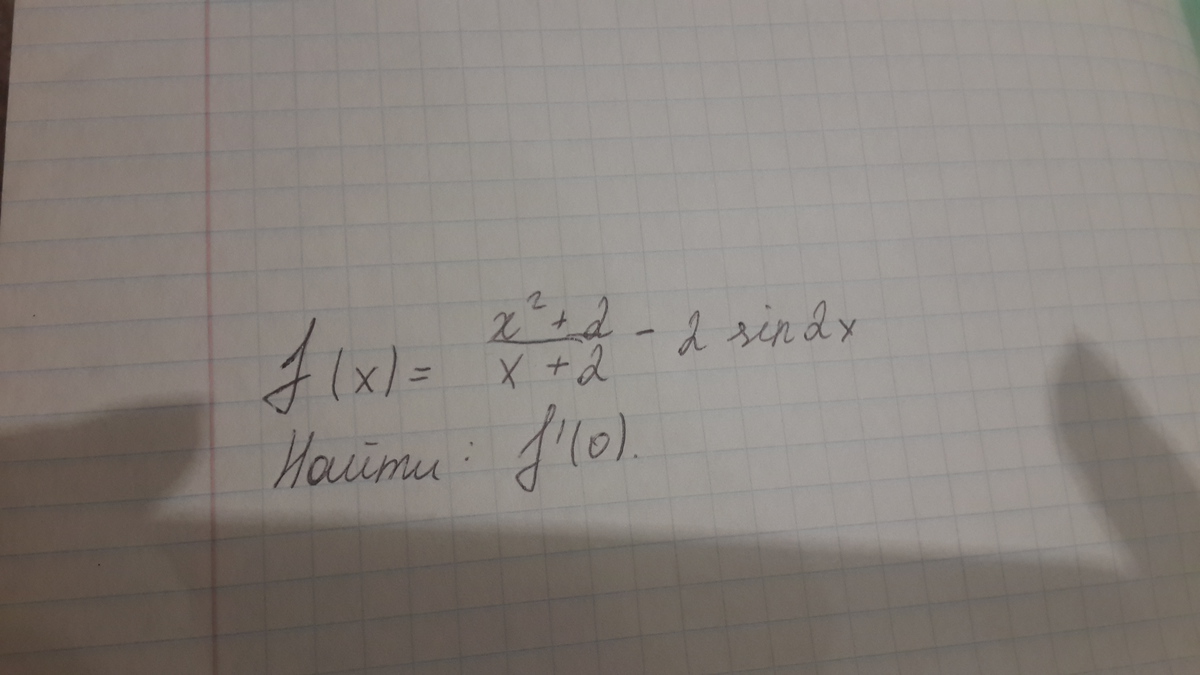 f(x) = \frac{x^2 + 2}{x + 2} - 2 sin 2x
Найти: f'(0).